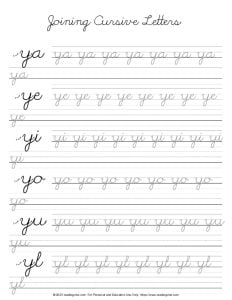 Joining Cursive Letters
ya ya ya ya ya ya ya ya
ya
ye ye ye ye ye ye ye ye
ye
yi yi yi yi yi yi yi yi yi
yi
yo yo yo yo yo yo yo yo
yo
yu yu yu yu yu yu yu
yu
yl yl yl yl yl yl yl yl
yl